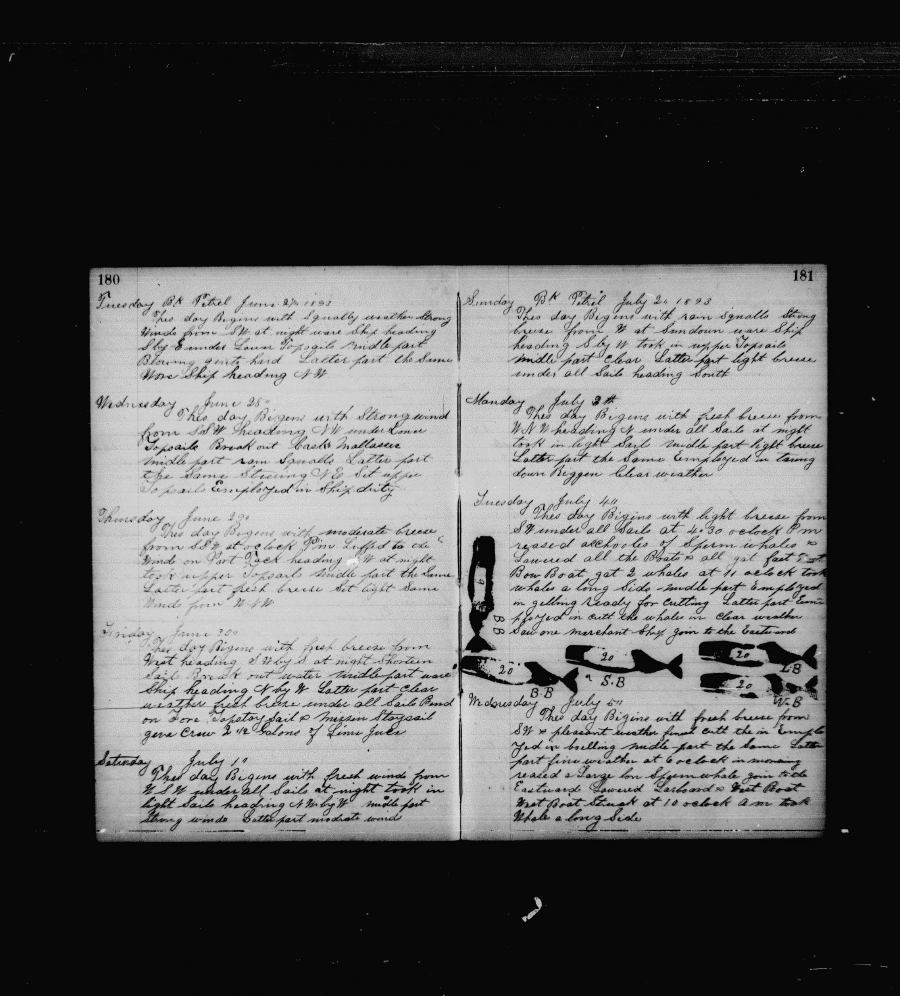 180
Tuesday Bk Petrel June 27th 1893
This day Bigins with Squally weather Strong
Winds from SW at night ware Ship heading
S by E under Lower Topsails Midle part
Blowing quite hard Latter part the Same
Wore Ship heading NW
Wednesday June 28"
This day Bigins with Strong wind
from SSW heading NW under Lower
Topsails Break out Cask Mallasses
Midle part rain Squalls Latter part
the Same Stearing NE Set upper
Topsails Employed in Ship duty
Thursday June 29"
This day Bigins with moderate breeze
from SSW at oclock Pm Luffed to the
Wind on Port Tack heading W at night
took upper Topsails Midle part the Same
Latter part fresh breeze Set light Same
Winds from WNW
Friday June 30"
This day Bigins with fresh breeze from
West heading SW by S at night Shorten
Sail Break out water Midle part ware
Ship heading N by W Latter part Clear
weather fresh breeze under all Sails Bend
on Fore Topstaysail & Missen Staysail
gave Crew 2 1/2 Galons of Lime Juice
Saturday July 1"
This day Bigins with fresh winds from
WSW under all Sails at night took in
light Sails heading NW by W Midle part
Strong winds Latter part modrate wind
181
Sunday Bk Petrel July 2" 1893
This day Bigins with rain Squalls Strong
breeze from W at Sundown ware Ship
heading S by W took in upper Topsails
Midle part Clear Latter part light breeze
under all Sails heading South
Manday July 3th
This day Bigins with fresh breeze from
WNW heading N under all Sails at night
took in light Sails Midle part light breeze
Latter part the Same Employed in taring
down Riggen Clear weather
Tuesday July 4"
This day Bigins with light breeze from
SW under all Sails at 4-30 oclock Pm
reased a Chooles of Sperm whales &
Lowered all the Boats & all gat fast
Bow Boat gat 2 whales at 11 oclock took
whales a long Side Midle part Employed
in getting ready for Cutting Latter part Em
ployed in Cutt the whale in Clear weather
Saw one Marchant Ship goin to the Eastward
B B
20
B.B
20
S.B
20
L.B
20
W.B
Wednesday July 5"
This day Bigins with fresh breeze from
SW & pleasant weather finest Cutt the in Emplo
yed in boiling Midle part the Same Latter
part fine weather at 6 oclock in morning
reased a Large lon Sperm whale goin to the
Eastward Lowered Larboard & West Boat
West Boat Struck at 10 oclock a m took
Whale a long Side